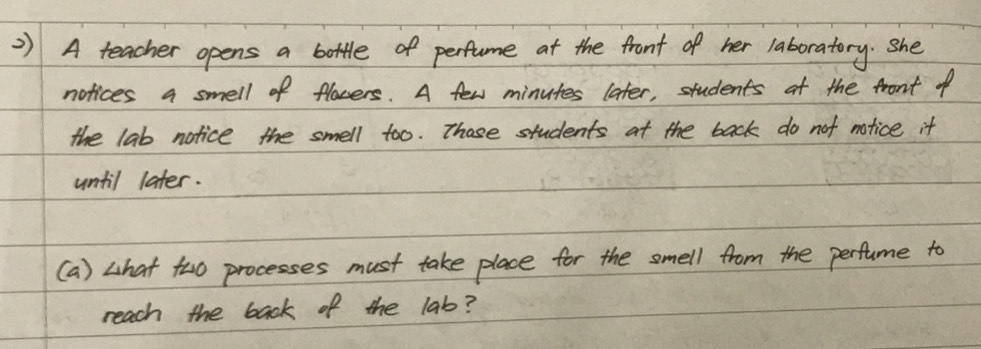 2) A teacher opens a bottle of perfume at the front of her laboratory. She
notices a smell of flowers. A few minutes later, students at the front of
the lab notice the smell too. Those students at the back do not notice it
until later.
(a) What two processes must take place for the smell from the perfume to
reach the back of the lab?